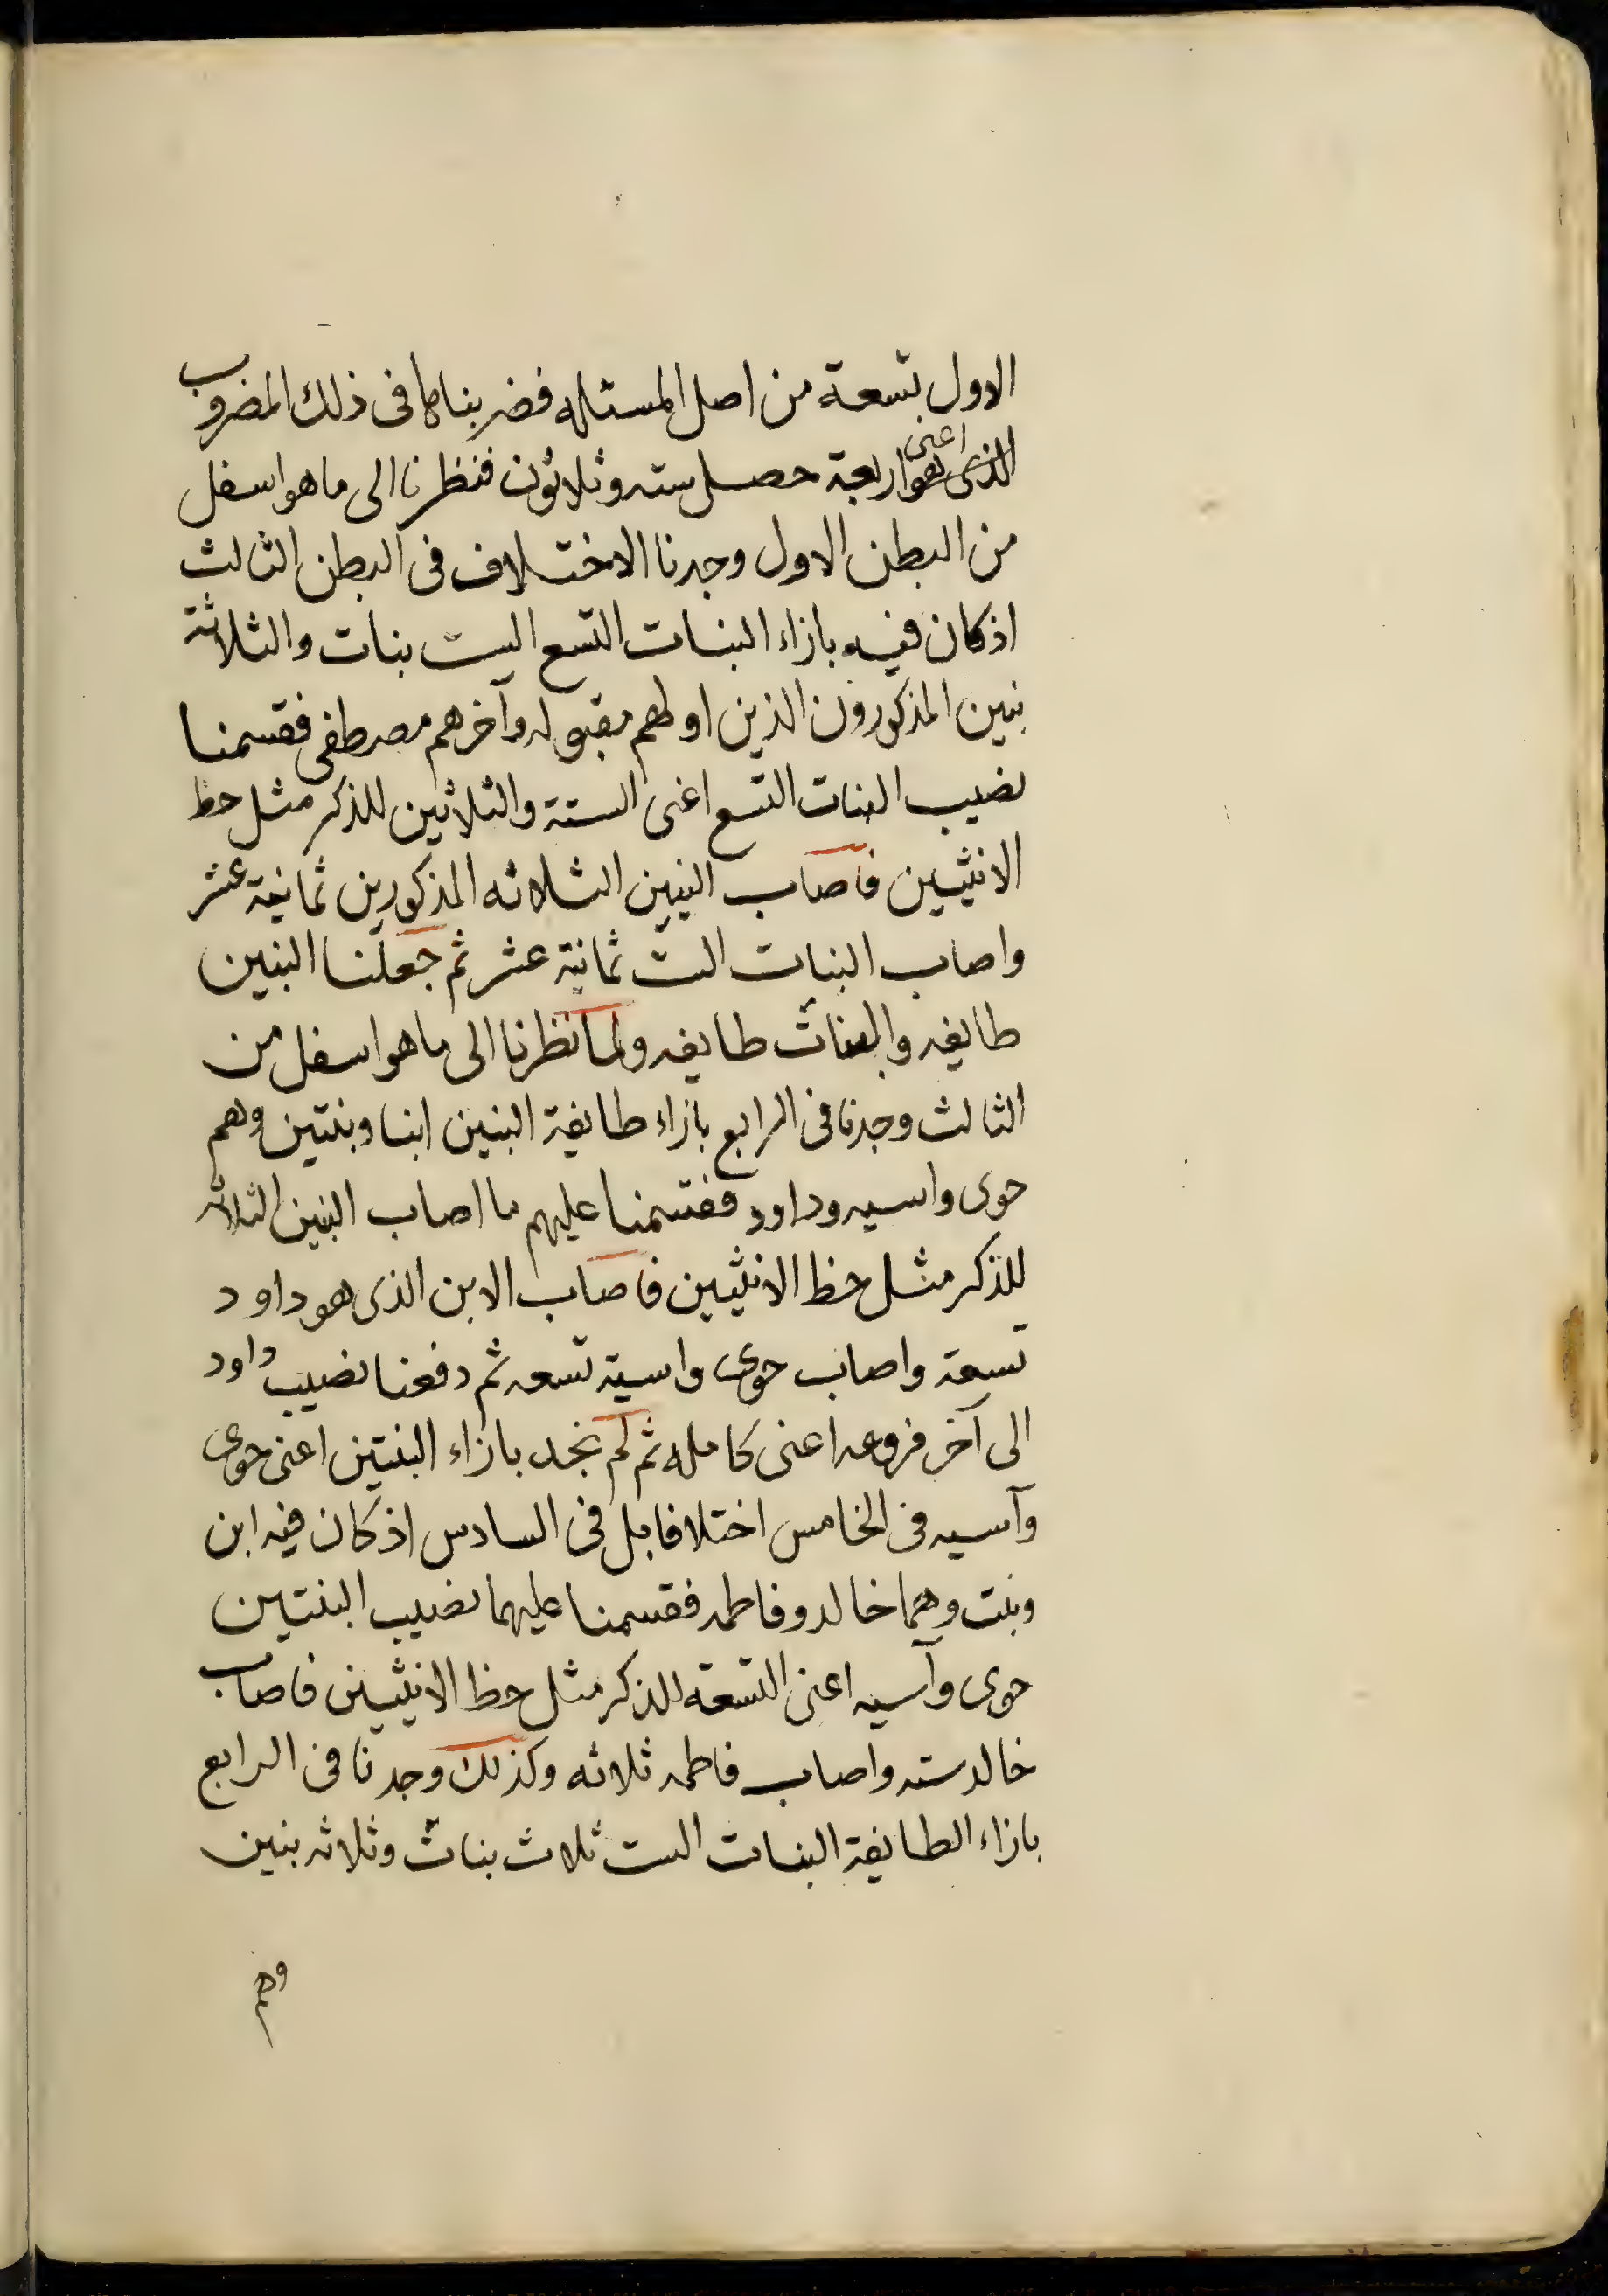 الاول تسعة من اصل المسئله فضربناها فى ذلك المضروب
الذى هو اعنى اربعة حصل سته وثلاثون فنظرنا الى ما هو اسفل
من البطن الاول وجدنا الاختلاف فى البطن الثالث
اذ كان فيه بازاء البنات التسع الست بنات والثلاثة
بنين المذكورون الذين اولهم مقبوله وآخرهم مصطفى فقسمنا
نصيب البنات التسع اعنى الستة والثلاثين للذكر مثل حظ
الانثيين فاصاب البنين الثلاثه المذكورين ثمانية عشر
واصاب البنات الست ثمانية عشر ثم جعلنا البنين
طايفه والبنات طايفه ولما نظرنا الى ما هو اسفل من
الثالث وجدنا فى الرابع بازاء طايفة البنين ابنا وبنتين وهم
حوى واسيه وداود فقسمنا عليهم ما اصاب البنين الثلاثه
للذكر مثل حظ الانثيين فاصاب الابن الذى هو داود
تسعة واصاب حوى واسية تسعه ثم دفعنا نصيب داود
الى آخر فروعه اعنى كامله ثم لم نجد بازاء البنتين اعنى حوى
وآسيه فى الخامس اختلافا بل فى السادس اذ كان فيه ابن
وبنت وهما خالد وفاطمه فقسمنا عليهما نصيب البنتين
حوى وآسيه اعنى التسعة للذكر مثل حظ الانثيين فاصاب
خالد سته واصاب فاطمه ثلاثه وكذلك وجدنا فى الرابع
بازاء الطايفة البنات الست ثلاث بنات وثلاثه بنين
وهم